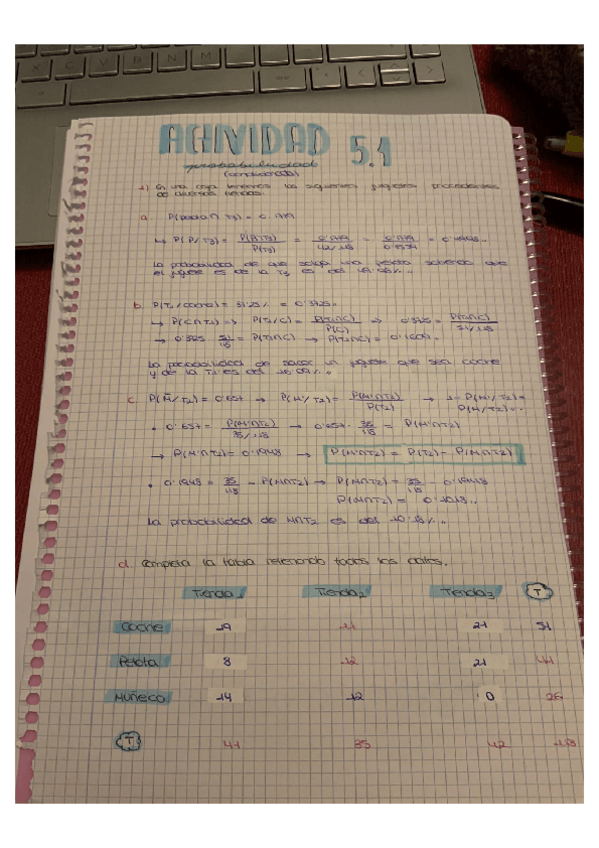 ACTIVIDAD 5.1
probabilidad
(condicionada)
1) En una caja tenemos los siguientes juguetes procedentes
de diversas tiendas.
a. P(pelota ∩ T3) = 0.179
↳ P(P/T3) = P(P∩T3) / P(T3) = 0.179 / 42/118 = 0.179 / = 0.
La probabilidad de que salga una pelota sabiendo que
el juguete es de la T3 es del
b. P(T2/coche) = % = 0.
→ P(C∩T2) → P(T2/C) = P(T2∩C) / P(C) ⇒ = P(T2∩C) /
→ = P(T2∩C) → P(T2∩C) = 0.1609..
La probabilidad de sacar un juguete que sea coche
y de la T2 es del 16.09%..
c. P(M̄/T2) = 0.657 → P(M'/T2) = P(M'∩T2) / P(T2) → 1 - P(M'/T2) =
P(M/T2) = ..
• 0.657 = P(M'∩T2) / 35/118 → 0.657 · 35/118 = P(M'∩T2)
→ P(M'∩T2) = 0.1948 → P(M'∩T2) = P(T2) - P(M∩T2)
• 0.1948 = 35/118 - P(M∩T2) → P(M∩T2) = 35/118 - 0.1948
P(M∩T2) = 0.1018..
La probabilidad de M∩T2 es del 10.18%..
d. Completa la tabla rellenando todos los datos.
Tienda1 Tienda2 Tienda3 T
Coche 19 11 21 51
Pelota 8 12 21 41
Muñeco 14 12 0 26
T 41 35 42 118